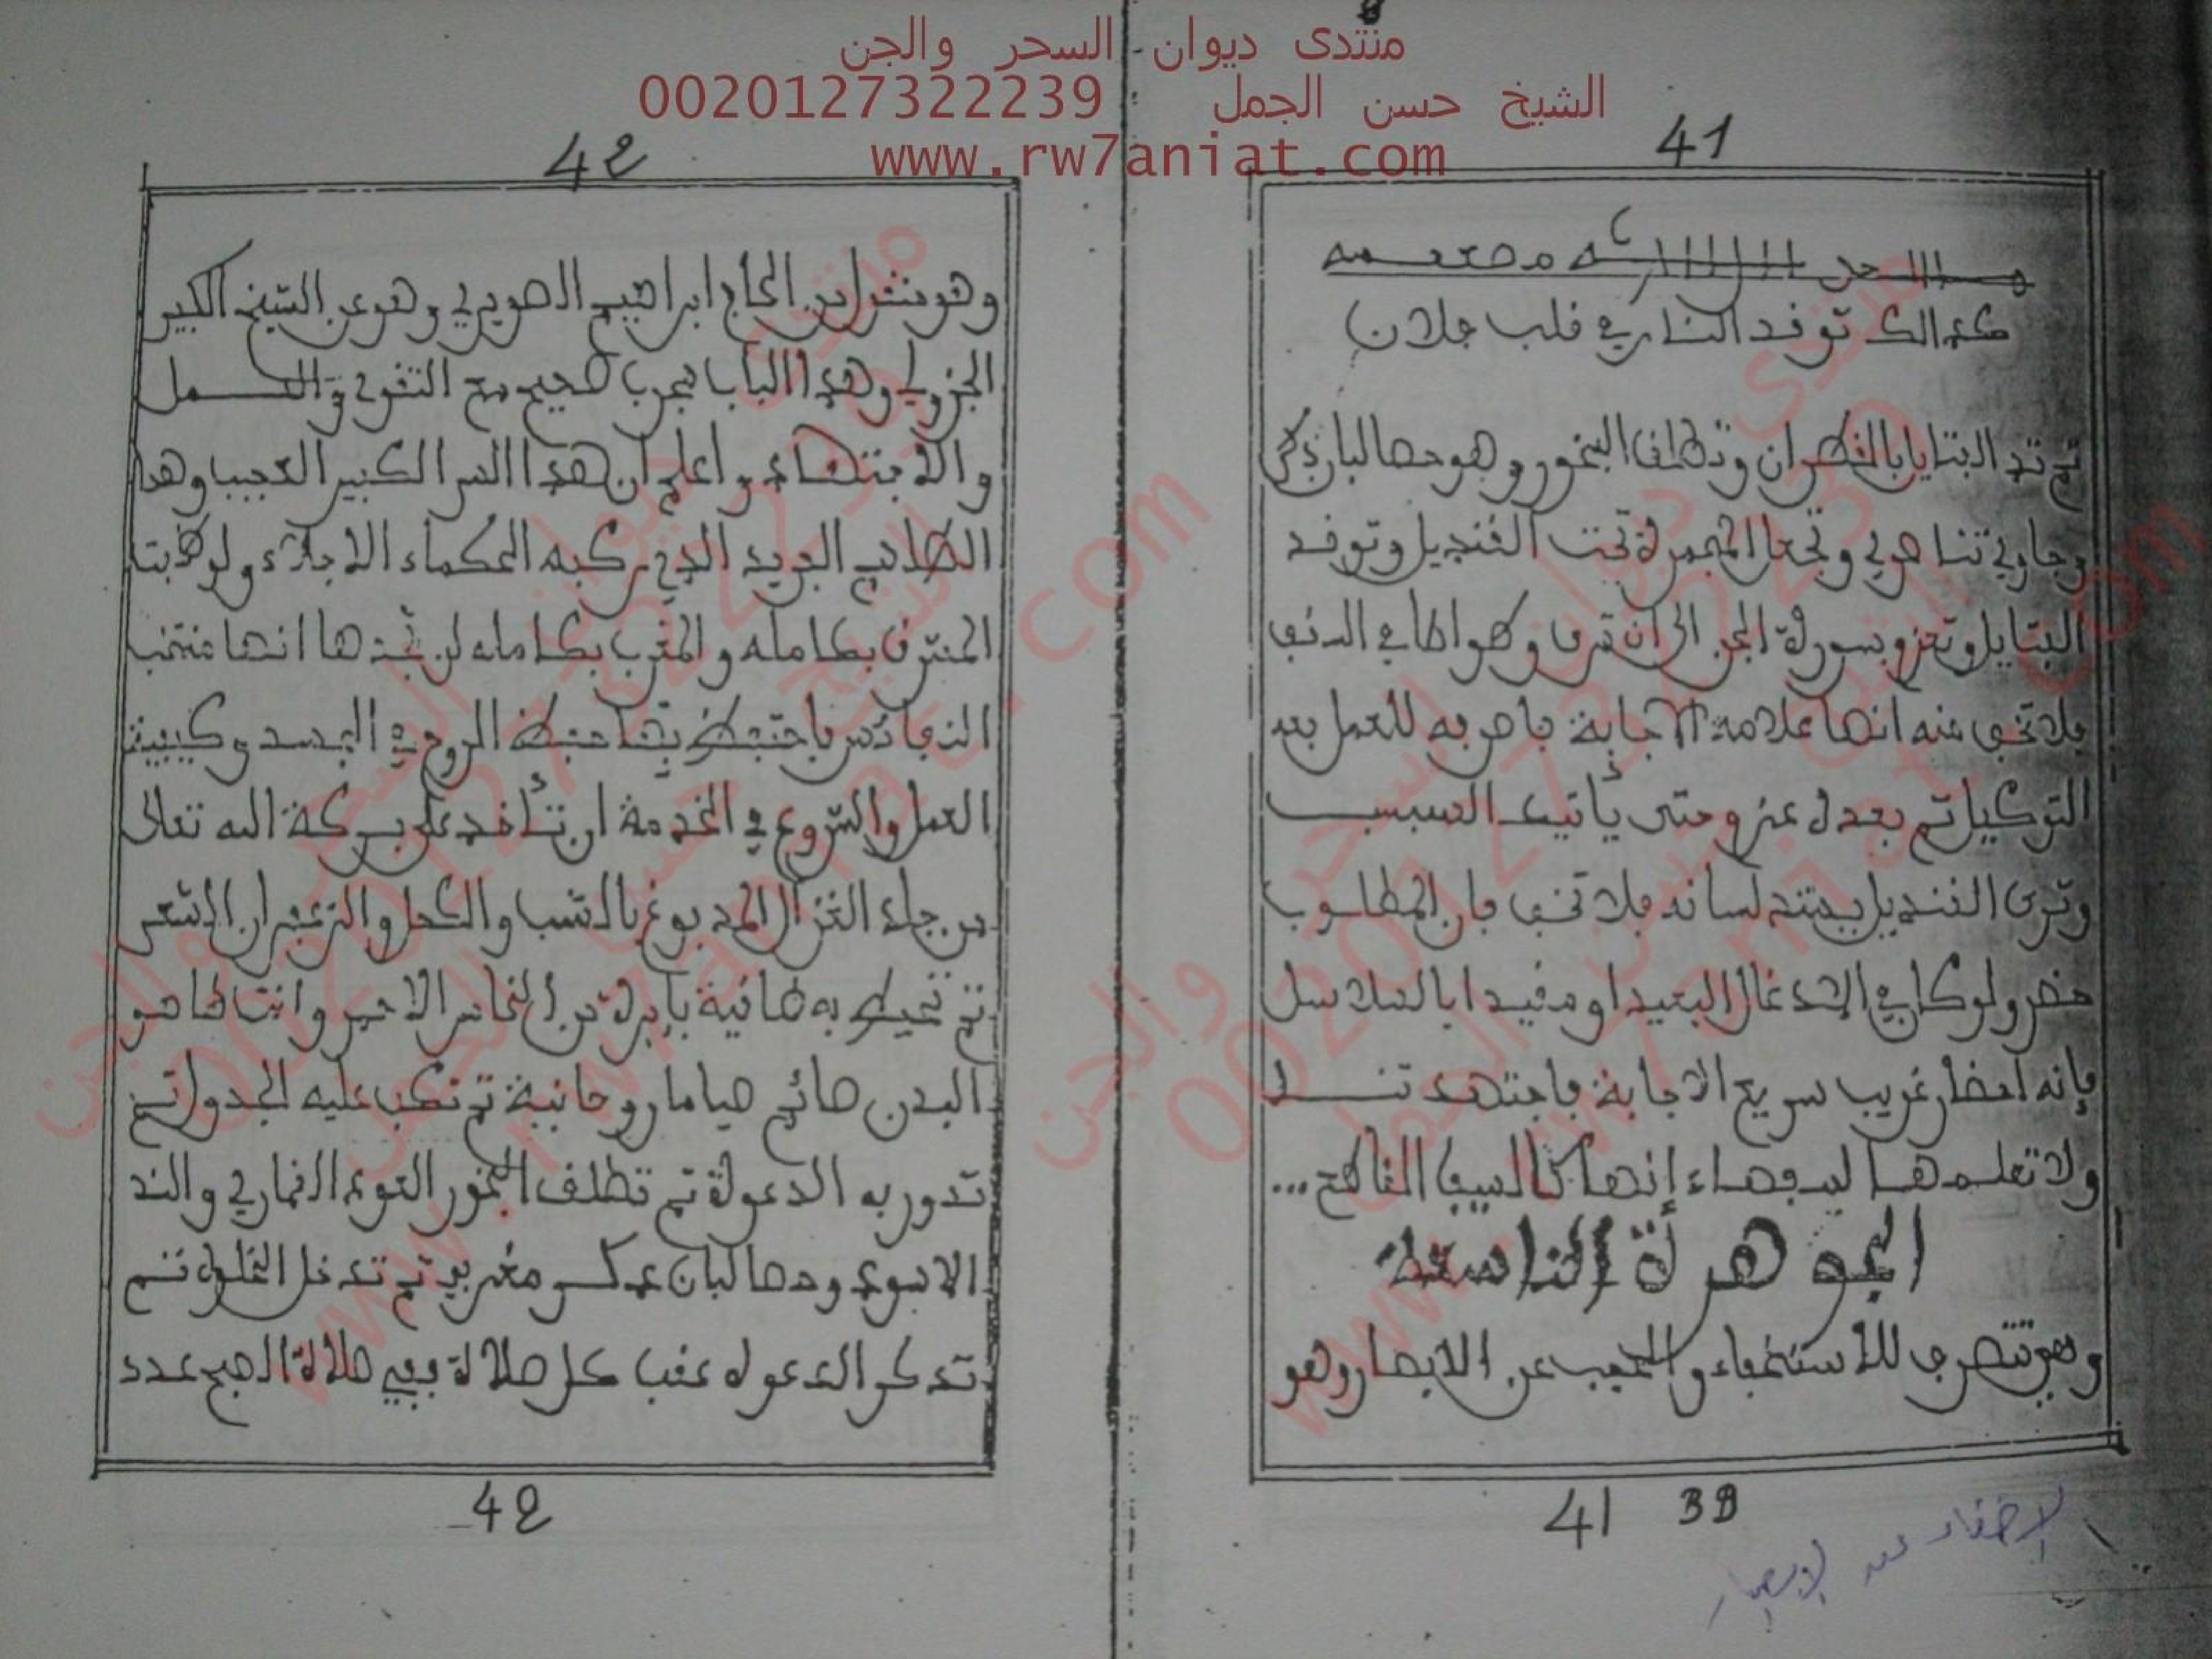 منتدى ديوان السحر والجن
الشيخ حسن الجمل 0020127322239
www.rw7aniat.com
41
كذالك توقد النار في قلب فلان
ثم تد بالقطران وتطلق البخور وهو حصالبان ذكر
وجاوي تناصري وتجعل المجمرة تحت القنديل وتوقد
الفتايل وتعزم بسورة الجن الى ان ترى في الدنيا
فلا تخف منه انها علامة الاجابة فاصرفه للعمل بعد
التوكيل ثم بعد ذلك عزم حتى يأتيك السبب
وترى القنديل يمتد لسانه فلا تخف فان المطلوب
حضر ولو كان في الادغال البعيد او مقيدا بالسلاسل
فإنه احضار غريب سريع الاجابة فاجتهد تنل
ولا تعلمها للسفهاء إنها كالسيف القاطع...
الجوهرة التاسعة
وهي تتصرف للاستخفاء والحجب عن الابصار وهو
41 39
الإخفاء عن الابصار
42
وهو منقول من الحاج ابراهيم الصويري وهو عن الشيخ الكبير
الجزولي وهذا الباب مجرب صحيح مع التقوى والعمل
والاجتهاد واعلم ان هذا السر الكبير العجيب وهذا
الطلاسم الفريد الذي ركبه الحكماء الاجلاء ولو طفت
المشرق بكامله والمغرب بكامله لن تجدها انها منتخب
النفائس فاحتفظ بها حفظ الروح في الجسد وكيفية
العمل والشروع في الخدمة ان تأخذ على بركة الله تعالى
من جلد الغزال المدبوغ بالشب والكحل والزعفران الشعر
ثم تخيط به طاقية بإبرة من النحاس الاحمر وانت طاهر
البدن صائم صياما روحانية ثم تكتب عليه الجدول ثم
تدور به الدعوة ثم تطلق البخور العود القماري والند
الاسود وحصالبان عكر مغربي ثم تدخل الخلوة ثم
تذكر الدعوة عقب كل صلاة ففي صلاة الصبح عدد
42